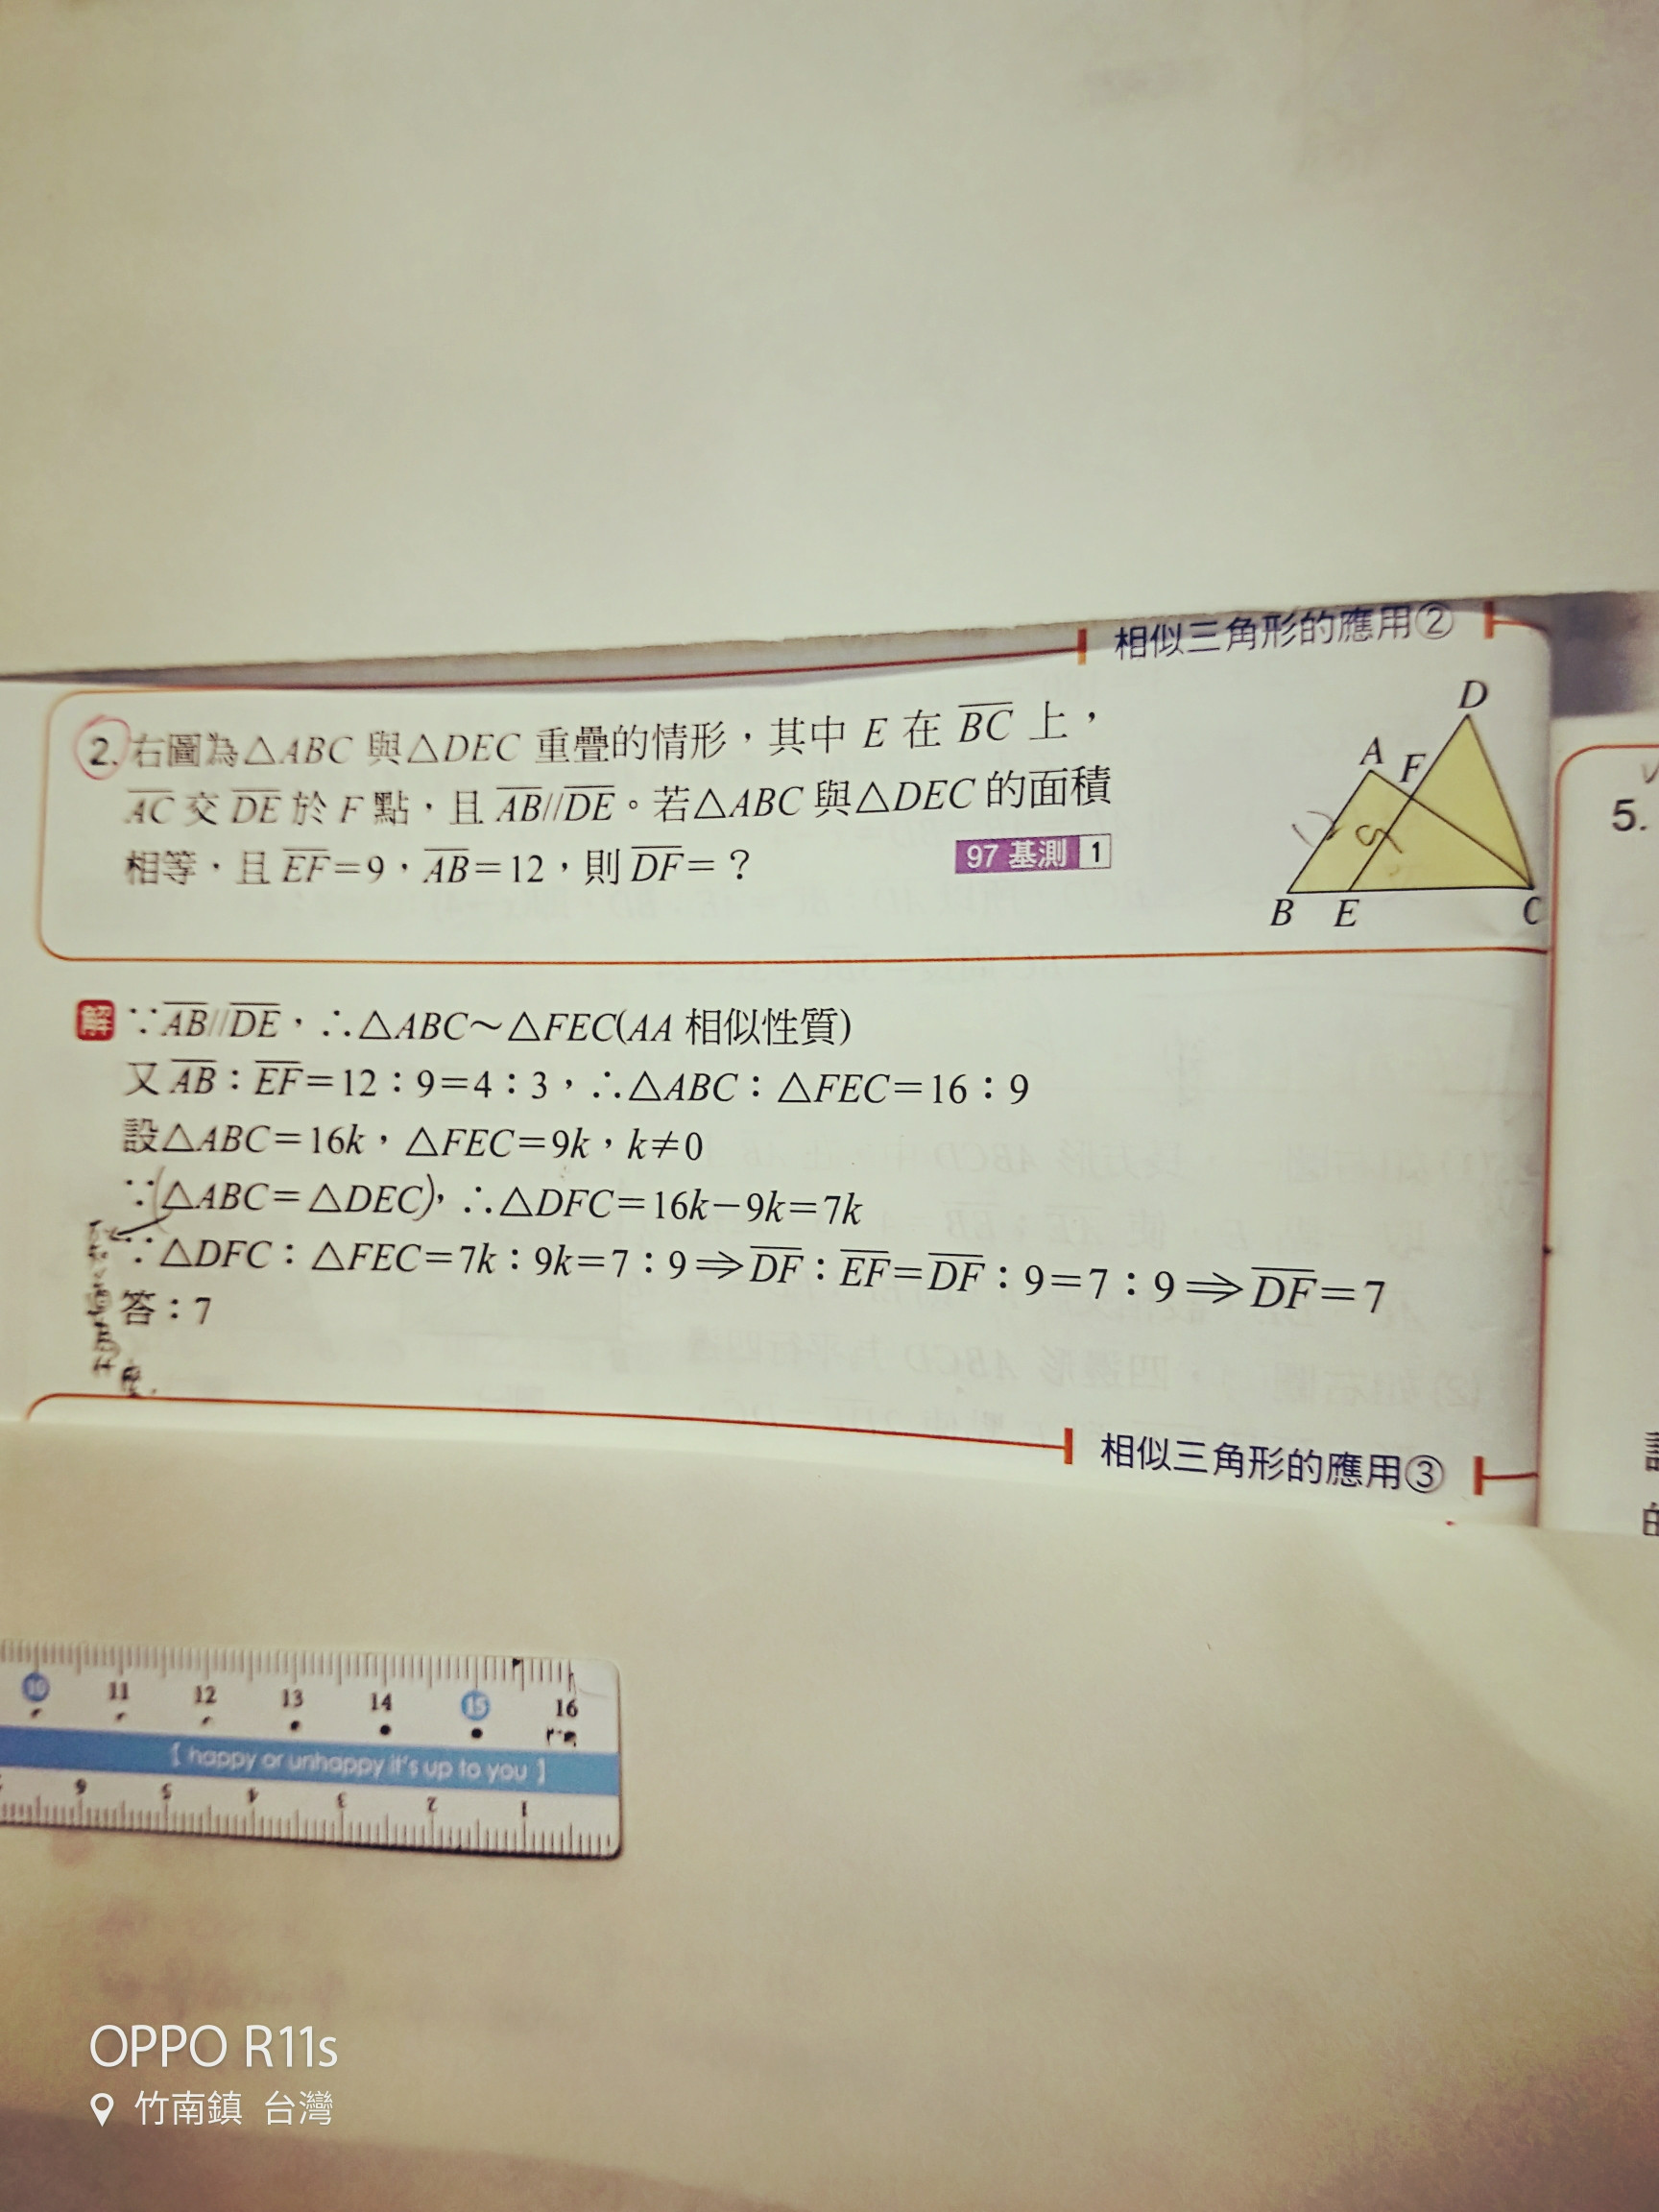 相似三角形的應用②
2. 右圖為△ABC 與△DEC 重疊的情形，其中 E 在 BC 上，
AC 交 DE 於 F 點，且 AB//DE。若△ABC 與△DEC 的面積
相等，且 EF=9，AB=12，則 DF=？
97 基測 1
D
A F
B E C
5.
解 ∵AB//DE，∴△ABC～△FEC(AA 相似性質)
又 AB：EF=12：9=4：3，∴△ABC：△FEC=16：9
設△ABC=16k，△FEC=9k，k≠0
∵(△ABC=△DEC)，∴△DFC=16k−9k=7k
∵△DFC：△FEC=7k：9k=7：9⇒DF：EF=DF：9=7：9⇒DF=7
答：7
相似三角形的應用③
的
10 11 12 13 14 15 16
[ happy or unhappy it's up to you ]
6 5 4 3 2 1
OPPO R11s
竹南鎮 台灣